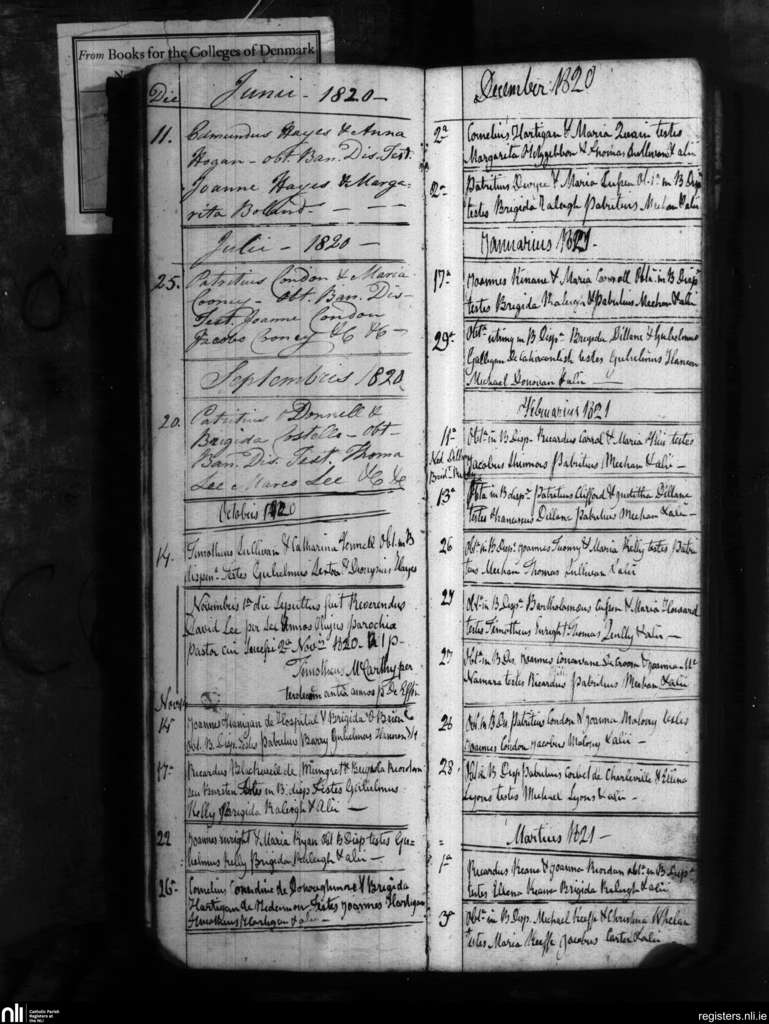 From Books for the Colleges of Denmark
Die Junii - 1820 -
11. Edmundus Hayes & Anna
Hogan - obt. Ban. Dis. Test.
Joanne Hayes & Marga-
rita Bolland - - -
Julii - 1820 -
25. Patritius Condon & Maria
Cooney - obt. Ban. Dis-
Test. Joanne Condon
Jacobo Cooney &c &c -
Septembris 1820
20. Patritius O Donnell &
Brigida Costello - obt-
Ban. Dis. Test. Thoma
Lee & Marco Lee &c &c
Octobris 1820
14. Timotheus Sullivan & Catharina Fennell Obt. in B
dispen. testes Gulielmus Sexton & Dionysius Hayes
Novembris 1a die sepultus fuit Reverendus
David Lee per annos hujus parochia
Pastor cui 2a Novis 1820 - R I P -
Timotheus McCarthy per
antea annos P. De Effin
Novis
15 Joannes Flanigan de Hospital & Brigida O Brien
obt. B. Disp. testes Patritius Barry Gulielmus Hannon &c
17a Ricardus Blackwell de Mungret & Brigida Riordan
testes in B. disp testes Gulielmus
Kelly Brigida Raleigh & Alii -
22 Joannes Enright & Maria Ryan obt B Disp testes Gu-
lielmus Kelly Brigida Raleigh & alii -
26a Cornelius Considine de Donoughmore & Brigida
Hartigan de testes Joannes Hartigan
Hartigan & alii -
December 1820
2a Cornelius Hartigan & Maria Quain testes
Margarita Fitzgibbon & Thomas Sullivan & alii
2a Patritius Dwyer & Maria Obtn in B Dispn
testes Brigida Raleigh Patritius Meehan & alii
Januarius 1821.
17a Joannes Kinane & Maria Carroll Obtn. in B Dispn
testes Brigida Raleigh & Patritius Meehan & alii
29a Obtn. utring in B Dispn Brigida Dillane & Gulielmus
Galligan De Cahirconlish testes Gulielmus Hannon
Michael Donovan & alii -
Februarius 1821
11a Obtn. in B Disp. Ricardus Carrol & Maria testes
Jacobus Patritius Meehan & alii -
13a Obtn in B disp. Patritius Clifford & Juditha Dillane
testes Franciscus Dillane Patritius Meehan & alii -
26 Obtn in B Dispn Joannes Twomy & Maria Kelly testes Patri-
tius Meehan Thomas Sullivan & alii
27 Obtn. in B Dispn Bartholomeus & Maria Howard
testes Timotheus Enright Thomas & alii -
27 Obtn. in B Dis. Joannes De Croom & Joanna Mc
Namara testes Ricardus Patritius Meehan & alii
28 Obt. in B Dis Patritius Condon & Joanna Malony testes
Joannes Condon Jacobus Malony & alii -
28. Obt. in B Disp Patritius Corbet de Charleville & Ellena
Lyons testes Michael Lyons & alii -
Martius 1821 -
1a Ricardus Keane & Joanna Riordan obtn. in B Dispn
testes Ellena Keane Brigida Raleigh & alii
3a Obtn. in B Disp. Michael Keeffe & Christina Whelan
testes Maria Keeffe Jacobus Carter & alii
nli Catholic Parish
Registers at
the NLI
registers.nli.ie